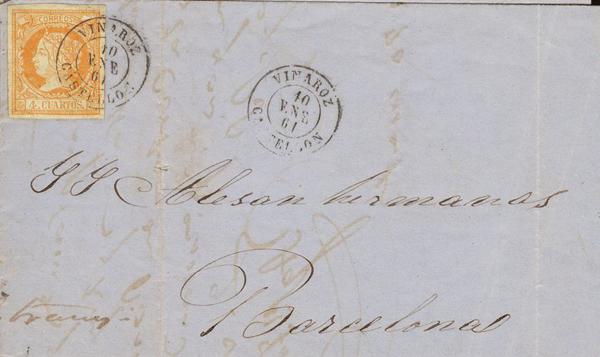 CORREOS
4 CUARTOS
VINAROZ
10
ENE
61
CASTELLON
VINAROZ
10
ENE
61
CASTELLON
SS Alesan hermanas
Barcelona